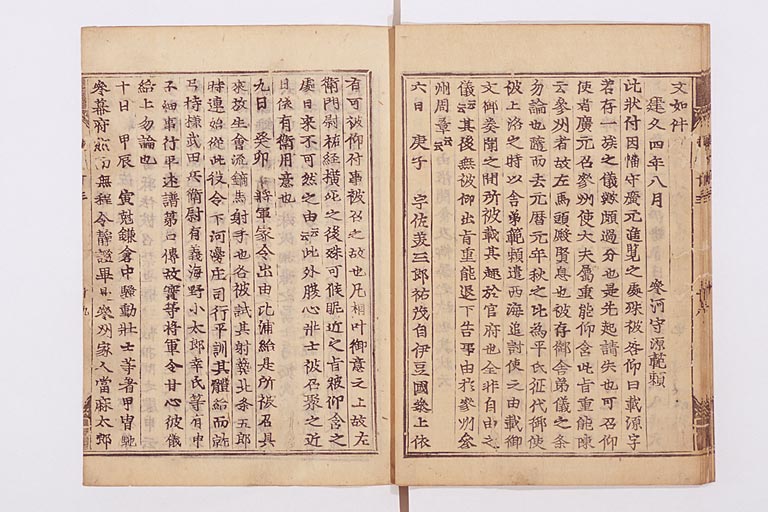 文如件
建久四年八月 參河守源範頼
此狀付因幡守廣元進覧之處殊被咎仰曰載源字
若存一族之儀歟頗過分也是先起請失也可召仰
使者廣元召參州使大夫属重能仰含此旨重能陳
云參州者故左馬頭殿賢息也被存御舎弟儀之条
勿論也隨而去元暦元年秋之比為平氏征伐御使
被上洛之時以舎弟範頼遣西海追討使之由載御
文御奏聞之間所被載其趣於官府也全非自由之
儀云云其後無被仰出旨重能退下告事由於參州參
州周章云云
六日 庚子 宇佐美三郎祐茂自伊豆國參上依
有可被仰付事被召之故也凡相叶御意之上故左
衛門尉祐経横死之後殊可候昵近之旨被仰含之
處日来不可然之由云云此外腹心壮士被召聚之近
日依有衛用意也
九日 癸卯 將軍家令出由比浦給是所被召具
來放生會流鏑馬射手也各被試其射藝北条五郎
時連始從此役令下河邊庄司行平訓其躰給而就
弓持樣武田兵衛尉有義海野小太郎幸氏等有申
不細事行平述譜第口傳故實等將軍令甘心彼儀
給上勿論也
十日 甲辰 寅尅鎌倉中騒動壮士等著甲冑馳
參幕府然而無程令静謐畢是參州家人當麻太郎